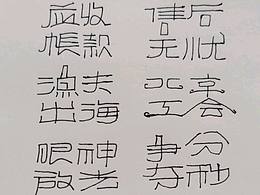 应收 售后
帳款 无忧
渔夫 北京
出海 工会
眼神 争分
夺秒